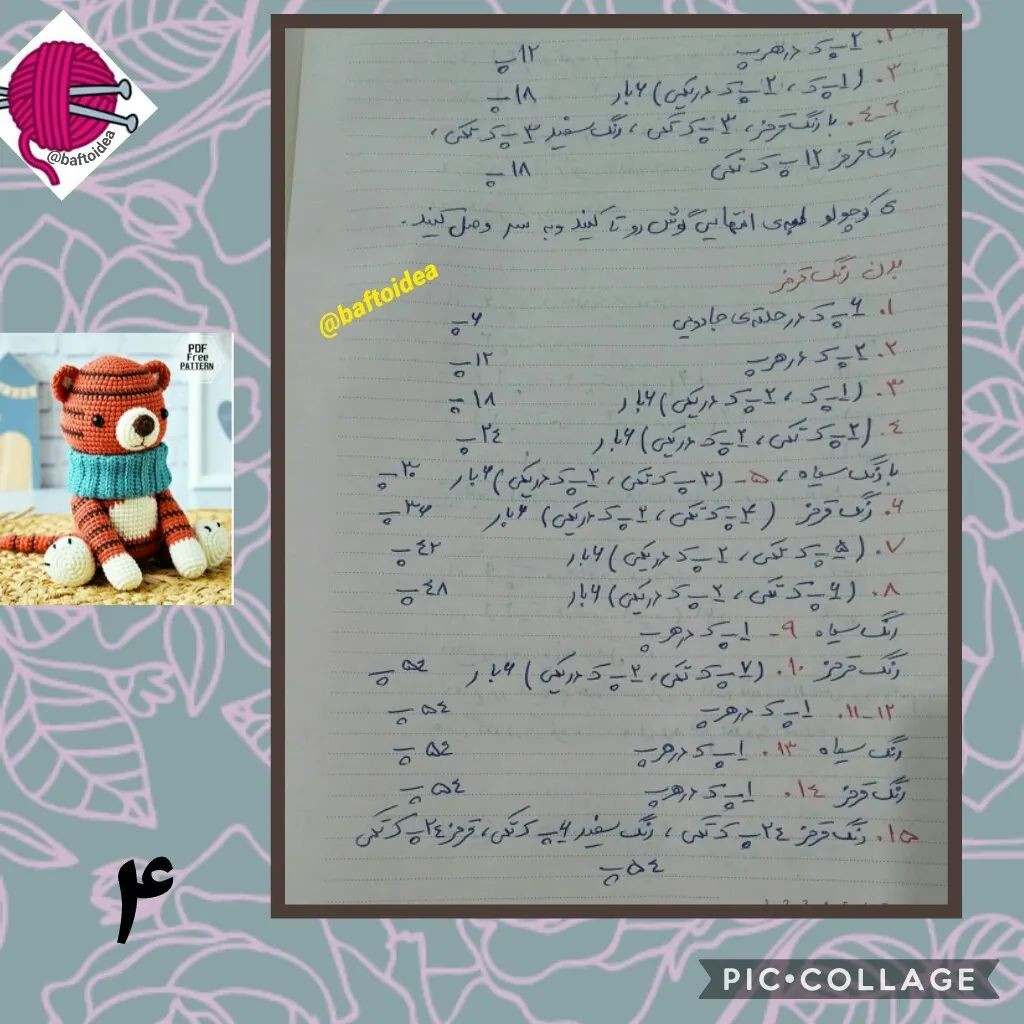 @baftoidea
PDF
Free
PATTERN
۴
۲. ۲پ ک درهرپ ۱۲پ
۳. (۱پ ک ، ۲پ ک دریکی) ۶بار ۱۸پ
۴-۶. با رنگ قرمز، ۳پ ک تکی ، رنگ سفید ۳پ ک تکی ،
رنگ قرمز ۱۲پ ک تکی ۱۸پ
کوچولو انتهایی گوش رو تا کنید وبه سر وصل کنید .
بدن رنگ قرمز
۱. ۶پ ک درحلقه‌ی جادویی ۶پ
۲. ۲پ ک درهرپ ۱۲پ
۳. (۱پ ک ، ۲پ ک دریکی) ۶بار ۱۸پ
۴. (۲پ ک تکی، ۲پ ک دریکی) ۶بار ۲۴پ
با رنگ سیاه ، ۵- (۳پ ک تکی ، ۲پ ک دریکی) ۶بار ۳۰پ
۶. رنگ قرمز (۴پ ک تکی ، ۲پ ک دریکی) ۶بار ۳۶پ
۷. (۵پ ک تکی ، ۲پ ک دریکی) ۶بار ۴۲پ
۸. (۶پ ک تکی ، ۲پ ک دریکی) ۶بار ۴۸پ
رنگ سیاه ۹- ۱پ ک درهرپ
رنگ قرمز ۱۰. (۷پ ک تکی، ۲پ ک دریکی) ۶بار ۵۴پ
۱۱-۱۲. ۱پ ک درهرپ ۵۴پ
رنگ سیاه ۱۳. ۱پ ک درهرپ ۵۴پ
رنگ قرمز ۱۴. ۱پ ک درهرپ ۵۴پ
۱۵. رنگ قرمز ۲۴پ ک تکی ، رنگ سفید ۶پ ک تکی، قرمز ۲۴پ ک تکی
۵۴پ
@baftoidea
PIC•COLLAGE